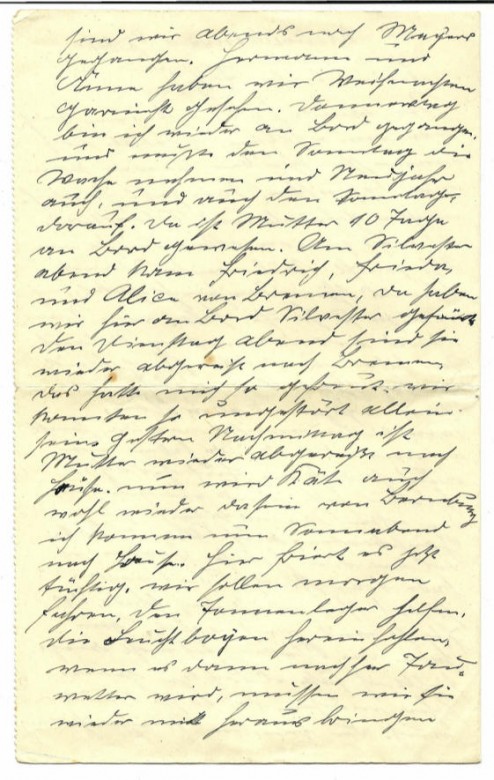 sind wir abends nach Meyers
gegangen. Hermann und
Änne haben wir Weihnachten
garnicht gesehen. Donnerstag
bin ich wieder an Bord gegangen
und mußte den Sonntag die
Wache nehmen und Neujahr
auch, und auch den Sonntag,
darauf. Da ist Mutter 10 Tage
an Bord gewesen. Am Silvester
abend kam Friedrich, Frieda,
und Alice von Bremen, da haben
wir hier an Bord Silvester gefeiert
Den Dienstag abend sind sie
wieder abgereist nach Bremen
das hatte mich so gefreut. wir
konnten so ungestört allein
sein. Gestern Nachmittag ist
Mutter wieder abgereist nach
Hause. nun wird Käte auch
wohl wieder da sein von Bernburg
ich komme nun Sonnabend
nach Hause. Hier friert es jetzt
tüchtig. wir sollen morgen
fahren, den Tonnenleger helfen,
die Leuchtbojen herein holen,
wenn es dann nachher Tau-
wetter wird, müssen wir sie
wieder mit heraus bringen